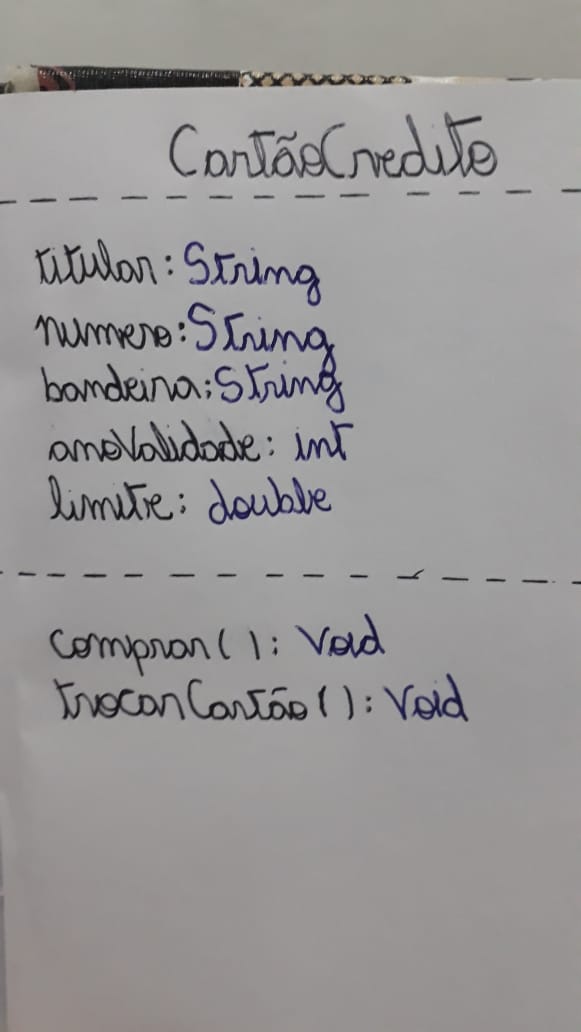 CartãoCredito
titular: String
numero: String
bandeira: String
anoValidade: int
limite: double
comprar(): Void
trocarCartão(): Void